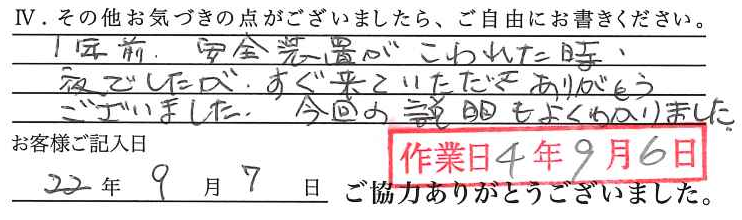 Ⅳ．その他お気づきの点がございましたら、ご自由にお書きください。
1年前．安全装置がこわれた時、
夜でしたが、すぐ来ていただきありがとう
ございました．今回の説明もよくわかりました。
お客様ご記入日
作業日4年9月6日
22年 9月 7日 ご協力ありがとうございました。